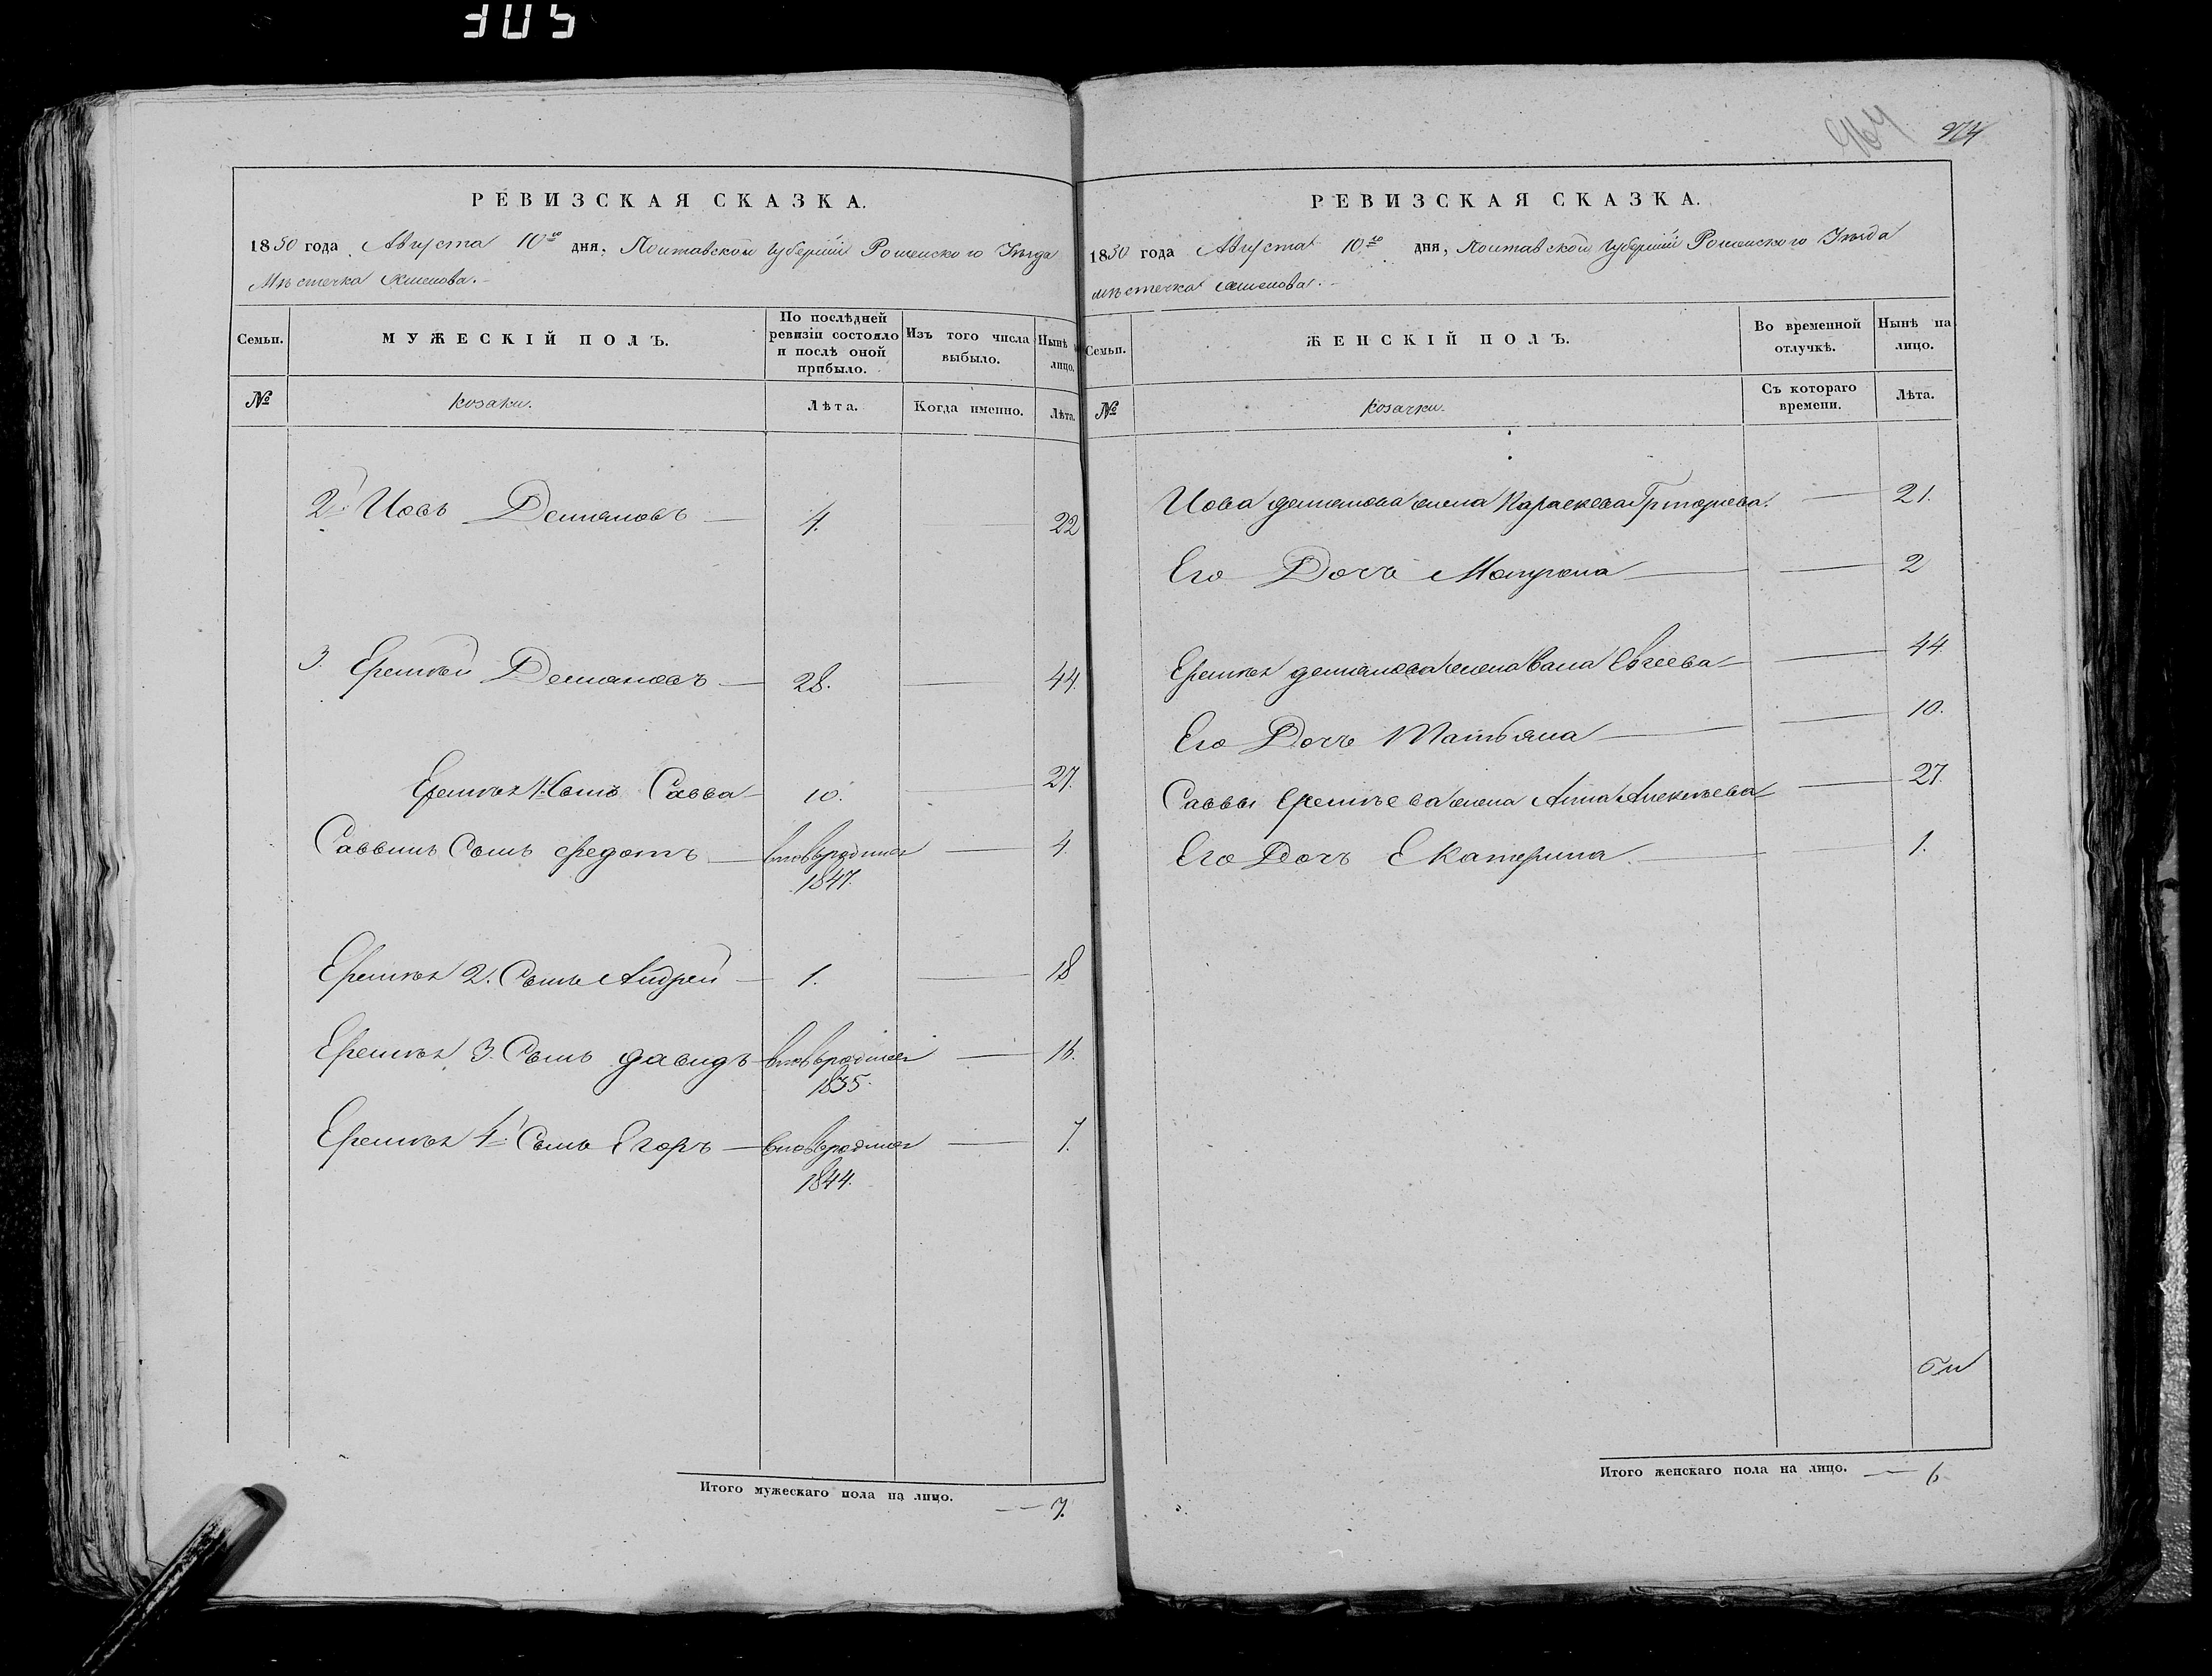 305
964
974
РЕВИЗСКАЯ СКАЗКА.
1850 года Августа 10го дня, Полтавской губернии Роменского Уезда
Местечка Смелова.
Семьи.
МУЖЕСКІЙ ПОЛЪ.
По послѣдней ревизіи состояло и послѣ оной прибыло.
Изъ того числа выбыло.
Нынѣ на лицо.
№
козаки.
Лѣта.
Когда именно.
Лѣта.
2й Иовъ Демяновъ — 4. 22
3. Еремѣй Демяновъ — 28. — 44.
Еремѣя 1й Сынъ Савва — 10. — 27.
Саввинъ Сынъ Федотъ — вновьродился — 4.
1847.
Еремѣя 2. Сынъ Андрей — 1. — 18
Еремѣя 3. Сынъ давидъ — вновьродился — 16.
1835.
Еремѣя 4й Сынъ Егоръ — вновьродился — 7.
1844.
Итого мужескаго пола на лицо. — 7.
РЕВИЗСКАЯ СКАЗКА.
1850 года Августа 10го дня, Полтавской губернии Роменского Уезда
местечка Смелова.
Семьи.
ЖЕНСКІЙ ПОЛЪ.
Во временной отлучкѣ.
Нынѣ на лицо.
№
козачки.
Съ котораго времени.
Лѣта.
Иова демянова жена Параскева Григорьева. — 21.
Его Дочь Мотрона — — 2
Еремѣя демянова жена Евгеева — — 44
Его Дочь Татьяна — — 10.
Саввы Еремѣева жена Анна Алексѣева — 27.
Его Дочь Екатерина. — — 1.
Итого женскаго пола на лицо. — 6